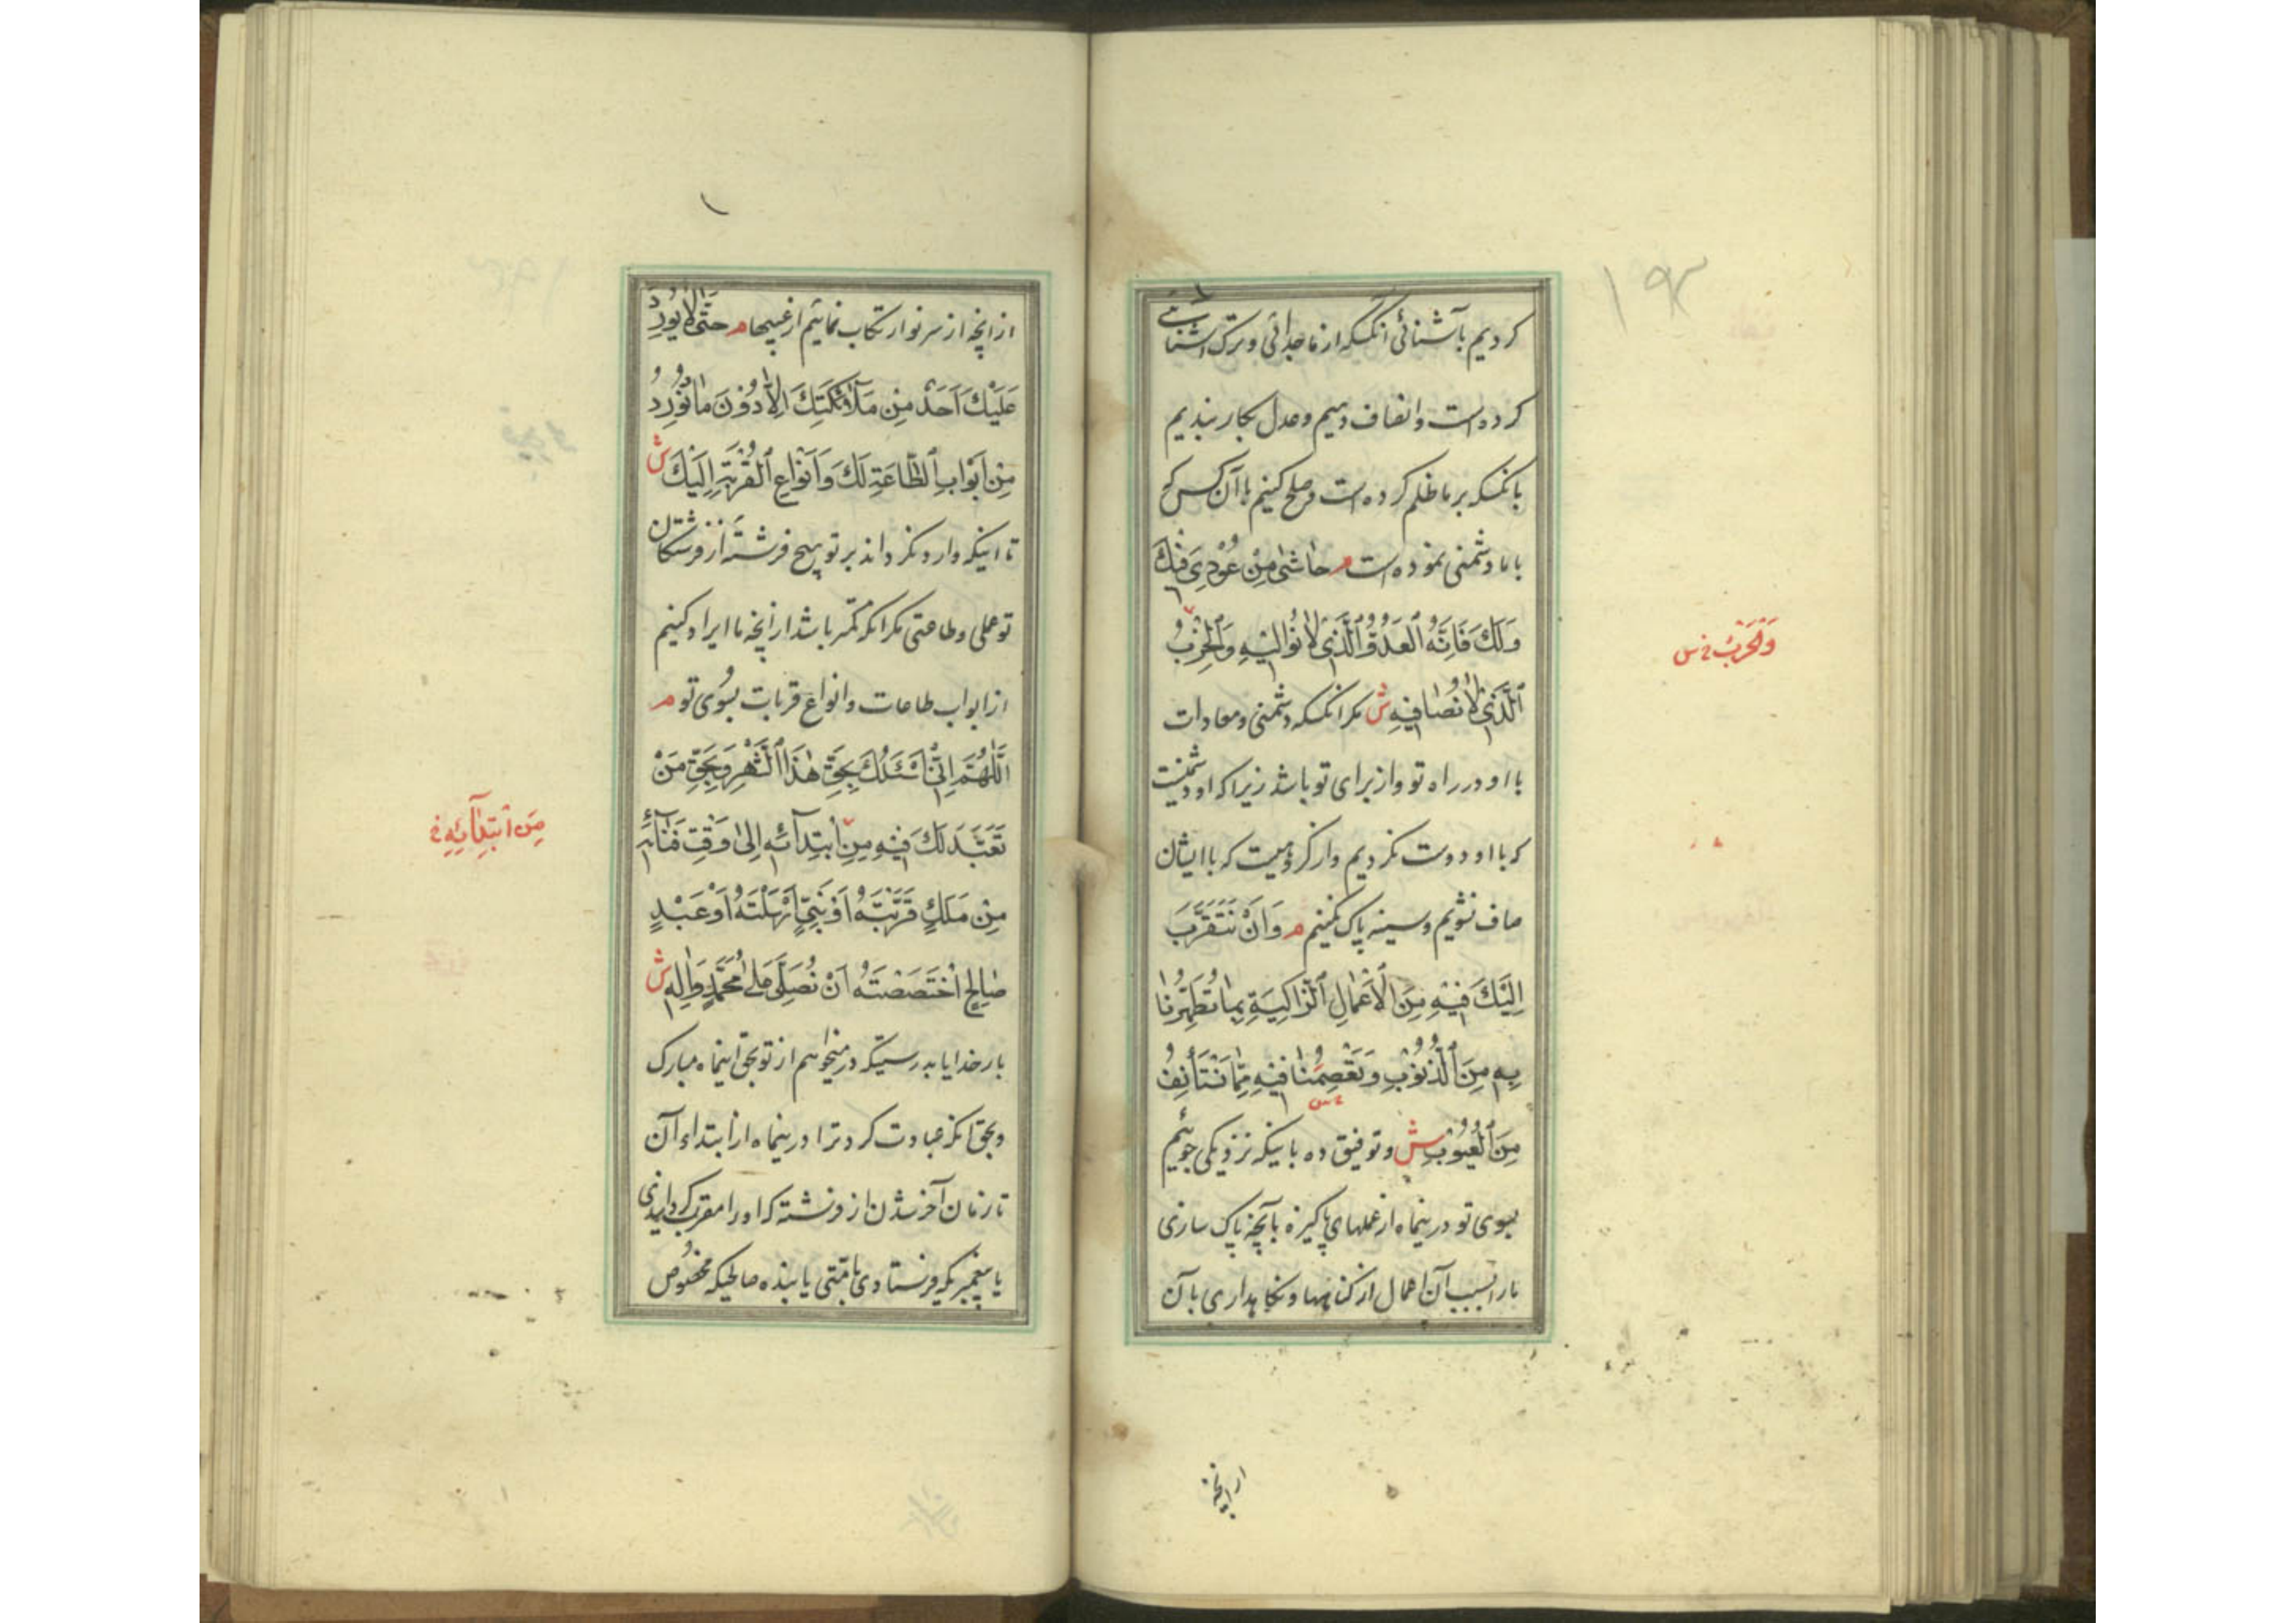 ۱۹۲
کردیم بآشنائی انکسکه از ما جدائی و ترک آشنائی
کرده است وانصاف دهیم وعدل بکار بندیم
بانکسکه بر ما ظلم کرده است وصلح کنیم باآن کس که
باما دشمنی نموده است م حاشىٰ مِنْ عُوْدِيَ فيْكَ
وَلَكَ فَاِنَّهُ الْعَدُوُّ الَّذِىْ لاٰ نُوْالِيْهِ وَالْحِزْبُ
وَالْحَرْبُ خ س
الَّذِىْ لاٰ نُصٰافيْهِ ش مکر انکسکه دشمنی ومعادات
با او در راه تو واز برای تو باشد زیرا که او دشمنیست
که با او دوست نکردیم واز کروهیست که با ایشان
صاف نشویم وسینه پاک نکنیم م وَاَنْ نَتَقَرَّبَ
اِلَيْكَ فيْهِ مِنَ الْاَعْمٰالِ الزّٰاكِيَةِ بِمٰا تُطَهِّرُنٰا
بِهٖ مِنَ الذُّنُوْبِ وَتَعْصِمُنٰا فيْهِ مِمّٰا نَسْتَأْنِفُ
مِنَ الْعُيُوْبِ ش وتوفیق ده باینکه نزدیکی جوئیم
بسوی تو درینماه از عملهای پاکیزه بآنچه پاک سازی
مارا بسبب آن اعمال از کناهها ونکاهداری بآن
ازانچه
ازانچه از سر نو ارتکاب نمائیم از عیبها م حَتّٰى لاٰ يُوْرِدَ
عَلَيْكَ اَحَدٌ مِنْ مَلاٰئِكَتِكَ اِلاّٰ دُوْنَ مٰا نُوْرِدُ
مِنْ اَبْوٰابِ الطّٰاعَةِ لَكَ وَاَنْوٰاعِ الْقُرْبَةِ اِلَيْكَ ش
تا اینکه وارد نکرداند بر تو هیچ فرشتۀ از فرشتکان
تو عملی وطاعتی مکر انکه کمتر باشد ازانچه ما ایراد کنیم
از ابواب طاعات وانواع قربات بسوی تو م
اَللّٰهُمَّ اِنّىْ اَسْئَلُكَ بِحَقِّ هٰذَا الشَّهْرِ وَبِحَقِّ مَنْ
تَعَبَّدَ لَكَ فيْهِ مِنِ ابْتِدٰآئِهٖ اِلىٰ وَقْتِ فَنٰآئِهٖ
مِنَ ابْتِدٰآئِهِ خ
مِنْ مَلَكٍ قَرَّبْتَهُ اَوْ نَبِىٍّ اَرْسَلْتَهُ اَوْ عَبْدٍ
صٰالِحٍ اخْتَصَصْتَهُ اَنْ تُصَلِّىَ عَلىٰ مُحَمَّدٍ وَاٰلِهٖ ش
بار خدایا بدرستیکه من میخواهم از تو بحق اینماه مبارک
وبحق انکه عبادت کرد ترا درینماه از ابتداء آن
تا زمان آخر شدن از فرشته که اورا مقرب کردانیدی
یا پیغمبریکه فرستادی بامتی یا بنده صالحیکه مخصوص